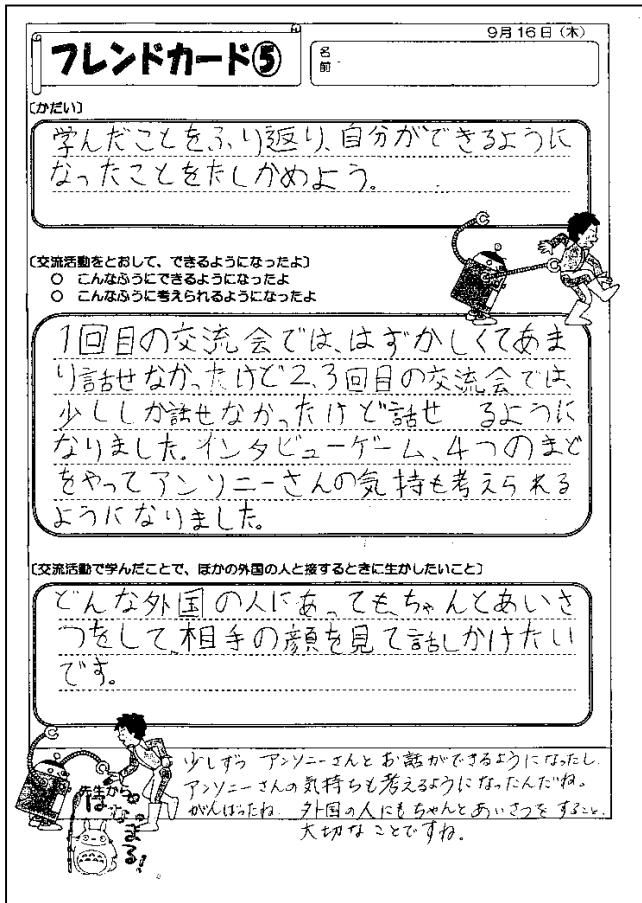 9月16日（木）
フレンドカード⑤
名前
〔かだい〕
学んだことをふり返り、自分ができるように
なったことをたしかめよう。
〔交流活動をとおして、できるようになったよ〕
○ こんなふうにできるようになったよ
○ こんなふうに考えられるようになったよ
1回目の交流会では、はずかしくてあま
り話せなかったけど2、3回目の交流会では、
少ししか話せなかったけど話せ るように
なりました。インタビューゲーム、4つのまど
をやってアンソニーさんの気持も考えられる
ようになりました。
〔交流活動で学んだことで、ほかの外国の人と接するときに生かしたいこと〕
どんな外国の人にあっても、ちゃんとあいさ
つをして、相手の顔を見て話しかけたい
です。
少しずつ アンソニーさんとお話ができるようになったし、
アンソニーさんの気持ちも考えるようになったんだね。
がんばったね。 外国の人にもちゃんとあいさつをすること、
大切なことですね。
先生から
はなまる!